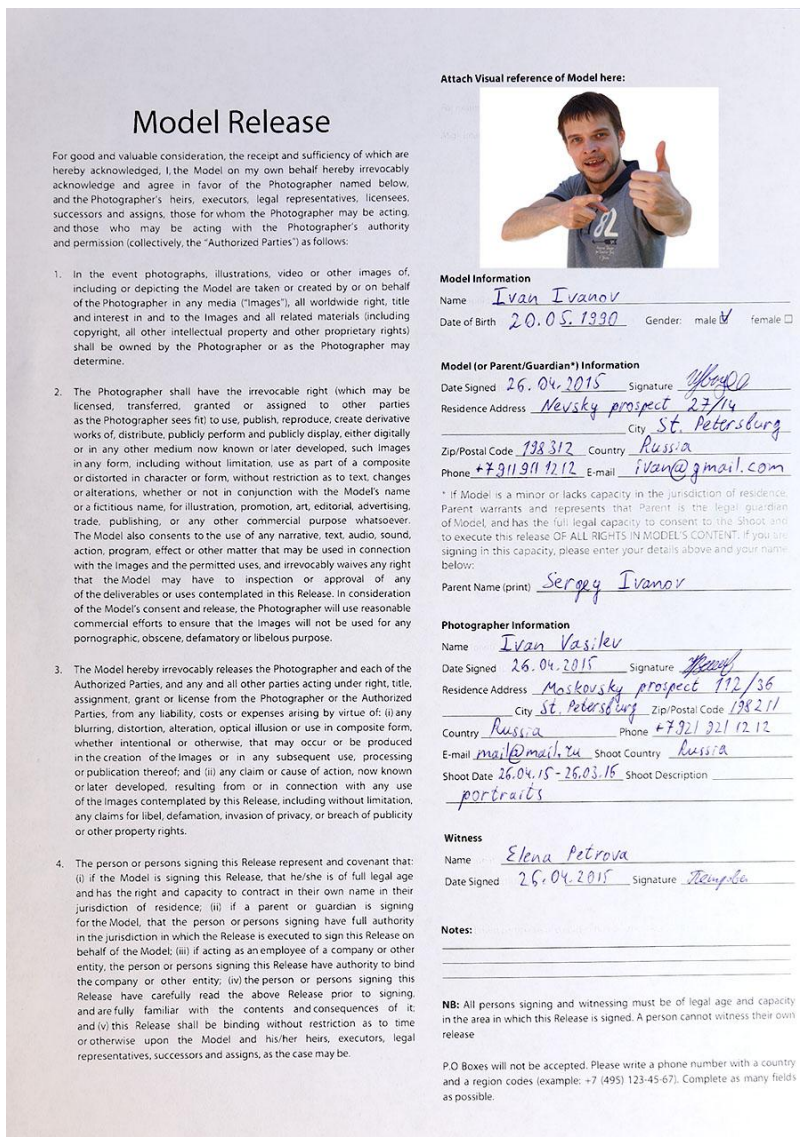 Model Release
For good and valuable consideration, the receipt and sufficiency of which are
hereby acknowledged, I, the Model on my own behalf hereby irrevocably
acknowledge and agree in favor of the Photographer named below,
and the Photographer's heirs, executors, legal representatives, licensees,
successors and assigns, those for whom the Photographer may be acting,
and those who may be acting with the Photographer's authority
and permission (collectively, the "Authorized Parties") as follows:
1. In the event photographs, illustrations, video or other images of,
including or depicting the Model are taken or created by or on behalf
of the Photographer in any media ("Images"), all worldwide right, title
and interest in and to the Images and all related materials (including
copyright, all other intellectual property and other proprietary rights)
shall be owned by the Photographer or as the Photographer may
determine.
2. The Photographer shall have the irrevocable right (which may be
licensed, transferred, granted or assigned to other parties
as the Photographer sees fit) to use, publish, reproduce, create derivative
works of, distribute, publicly perform and publicly display, either digitally
or in any other medium now known or later developed, such Images
in any form, including without limitation, use as part of a composite
or distorted in character or form, without restriction as to text, changes
or alterations, whether or not in conjunction with the Model's name
or a fictitious name, for illustration, promotion, art, editorial, advertising,
trade, publishing, or any other commercial purpose whatsoever.
The Model also consents to the use of any narrative, text, audio, sound,
action, program, effect or other matter that may be used in connection
with the Images and the permitted uses, and irrevocably waives any right
that the Model may have to inspection or approval of any
of the deliverables or uses contemplated in this Release. In consideration
of the Model's consent and release, the Photographer will use reasonable
commercial efforts to ensure that the Images will not be used for any
pornographic, obscene, defamatory or libelous purpose.
3. The Model hereby irrevocably releases the Photographer and each of the
Authorized Parties, and any and all other parties acting under right, title,
assignment, grant or license from the Photographer or the Authorized
Parties, from any liability, costs or expenses arising by virtue of: (i) any
blurring, distortion, alteration, optical illusion or use in composite form,
whether intentional or otherwise, that may occur or be produced
in the creation of the Images or in any subsequent use, processing
or publication thereof; and (ii) any claim or cause of action, now known
or later developed, resulting from or in connection with any use
of the Images contemplated by this Release, including without limitation,
any claims for libel, defamation, invasion of privacy, or breach of publicity
or other property rights.
4. The person or persons signing this Release represent and covenant that:
(i) if the Model is signing this Release, that he/she is of full legal age
and has the right and capacity to contract in their own name in their
jurisdiction of residence; (ii) if a parent or guardian is signing
for the Model, that the person or persons signing have full authority
in the jurisdiction in which the Release is executed to sign this Release on
behalf of the Model; (iii) if acting as an employee of a company or other
entity, the person or persons signing this Release have authority to bind
the company or other entity; (iv) the person or persons signing this
Release have carefully read the above Release prior to signing,
and are fully familiar with the contents and consequences of it;
and (v) this Release shall be binding without restriction as to time
or otherwise upon the Model and his/her heirs, executors, legal
representatives, successors and assigns, as the case may be.
Attach Visual reference of Model here:
82
Model Information
Name Ivan Ivanov
Date of Birth 20.05.1990 Gender: male female
Model (or Parent/Guardian*) Information
Date Signed 26.04.2015 Signature
Residence Address Nevsky prospect 27/14
City St. Petersburg
Zip/Postal Code 198312 Country Russia
Phone +7 911 911 12 12 E-mail ivan@gmail.com
* If Model is a minor or lacks capacity in the jurisdiction of residence,
Parent warrants and represents that Parent is the legal guardian
of Model, and has the full legal capacity to consent to the Shoot and
to execute this release OF ALL RIGHTS IN MODEL'S CONTENT. If you are
signing in this capacity, please enter your details above and your name
below:
Parent Name (print) Sergey Ivanov
Photographer Information
Name Ivan Vasilev
Date Signed 26.04.2015 Signature
Residence Address Moskovsky prospect 112/36
City St. Petersburg Zip/Postal Code 198211
Country Russia Phone +7 921 921 12 12
E-mail mail@mail.ru Shoot Country Russia
Shoot Date 26.04.15-26.03.16 Shoot Description
portraits
Witness
Name Elena Petrova
Date Signed 26.04.2015 Signature
Notes:
NB: All persons signing and witnessing must be of legal age and capacity
in the area in which this Release is signed. A person cannot witness their own
release
P.O Boxes will not be accepted. Please write a phone number with a country
and a region codes (example: +7 (495) 123-45-67). Complete as many fields
as possible.